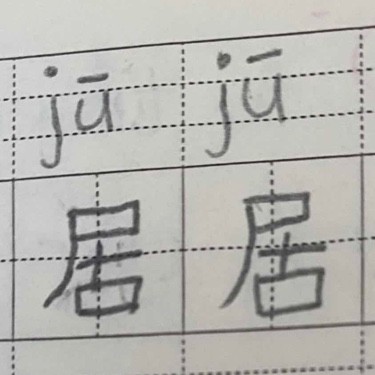 jū jū
居 居